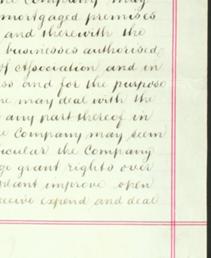 the Company may
mortgaged premises
and therewith the
businesses authorised
of Association and in
ss and for the purpose
ne may deal with the
any part thereof in
e Company may seem
icular the Company
ge grant rights over
improve open
receive expend and deal